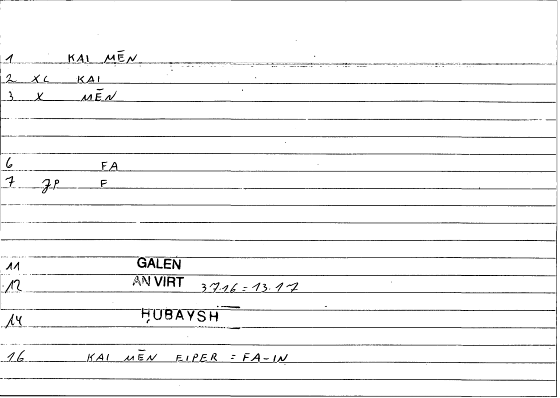 1 KAI MĒN
2 XC KAI
3 X MĒN
6 FA
7 JP F
11 GALEN
12 AN VIRT 37.16 = 13.17
14 ḤUBAYSH
16 KAI MĒN EIPER = FA-IN